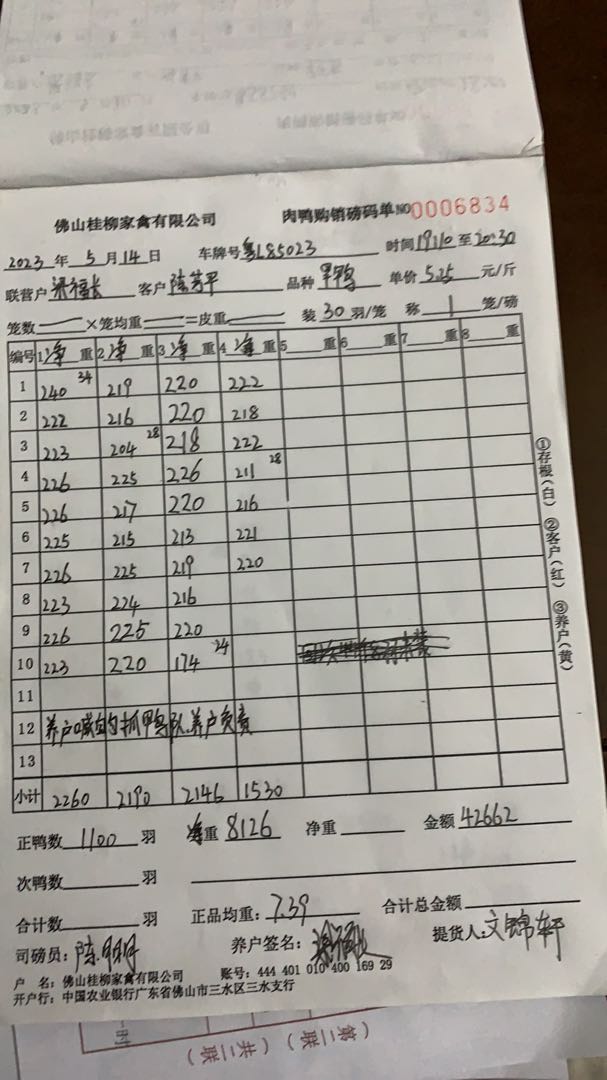 佛山桂柳家禽有限公司 肉鸭购销磅码单 NO 0006834
2023 年 5 月 14 日 车牌号 粤L85023 时间 19:10 至 20:30
联营户 梁福长 客户 陈芳平 品种 旱鸭 单价 5.25 元/斤
笼数 ×笼均重 =皮重 装 30 羽/笼 称 1 笼/磅
编号 1 净 重 2 净 重 3 净 重 4 净 重 5 重 6 重 7 重 8 重
1 240 34 219 220 222
2 222 216 220 218
3 223 204 28 218 222
4 226 225 226 211 28
5 226 217 220 216
6 225 215 213 221
7 226 225 219 220
8 223 224 216
9 226 225 220
10 223 220 174 24
11
12 养户喊的抓鸭队.养户负责
13
小计 2260 2190 2146 1530
①存根(白) ②客户(红) ③养户(黄)
正鸭数 1100 羽 净重 8126 净重 金额 42662
次鸭数 羽
合计数 羽 正品均重: 7.39 合计总金额
司磅员: 陈 养户签名: 提货人: 文锦轩
户 名: 佛山桂柳家禽有限公司 账号: 444 401 010 400 169 29
开户行: 中国农业银行广东省佛山市三水区三水支行
(第二联) (共二联)